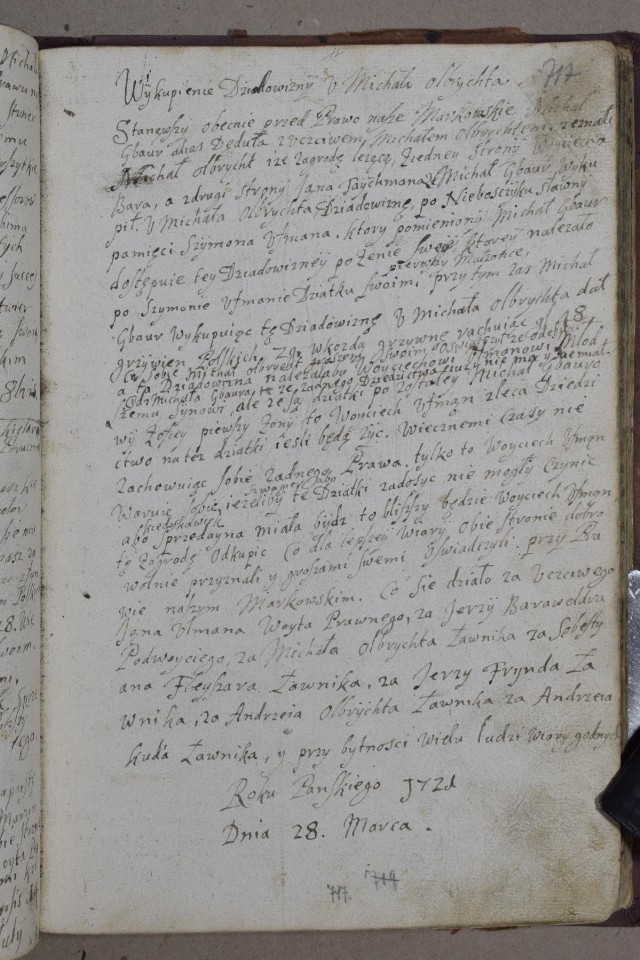 717
Wykupienie Dziadowizny U Michała Olbrychta.
Stanąwszy obecnie przed Prawo nasze Markowskie Michał
Gbaur alias Deduła z uczciwem Michałem Olbrychtem, zeznali
Michał Olbrycht isz Zagrodę lezącą z iedney Strony Woyciecha
Bara, a z drugi Strony Jana Taychmana, Michał Gbaur Wyku
pił U Michała Olbrychta Dziadowiznę, po Nieboszczyku, sławny
pamięci Szymona Ulmana. ktory pomieniony Michał Gbaur
dostępuie tey Dziadowizney po Zenie swey ktorey nalezało
pierwszy Małżonce,
po Szymonie Ulmanie Dziatku swoim, przytym zas Michał
Gbaur Wykupuiąc tę Dziadowiznę U Michała Olbrychta dał
grzywien Polskich w kozdą grzywnę rachuiąc gr 48
a ta Dziadowizna nalezałaby Woyciechowi Ulmanowi Młod
szemu Synowi, ale ze są dziatki po zostałey Michał Gbaurow
wy Zosiey pierwszy Zony to Woyciech Ulman zleca Dziedzi
ctwo na tez dziatki iesli będą żyć. Wiecznemi czasy nie
zachowuiąc sobie Zadnego Prawa. tylko to Woyciech Ulman
Waruie sobie, iezeliby te Dziatki radosyc nie mogły czynic
abo sprzedayna miała bydz to bliższy będzie Woyciech Ulman
tę Zogrodę Odkupic Co dla lepszey Wiary Obie Stronie dobro
wolnie przyznali y groszami swemi Oświadczyli. przy Pra
wie naszym Markowskim. Co się działo za Uczciwego
Jana Ulmana Woyta Prawnego, za Jerzy Baraweldra
Podwoyciego, za Michała Olbrychta Ławnika za Sobesty
ana Fleyszara Ławnika, za Jerzy Frynda Ła
wnika, za Andrzeia Olbrychta Ławnika za Andrzeia
kuda Ławnika, y przy bytnosci wielu ludzi wiary godnych
Roku Panskiego 1721
Dnia 28. Marca.
717. 719